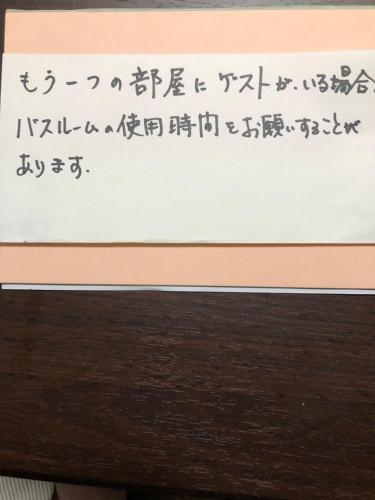 もう一つの部屋にゲストが、いる場合、
バスルームの使用時間をお願いすることが
あります.